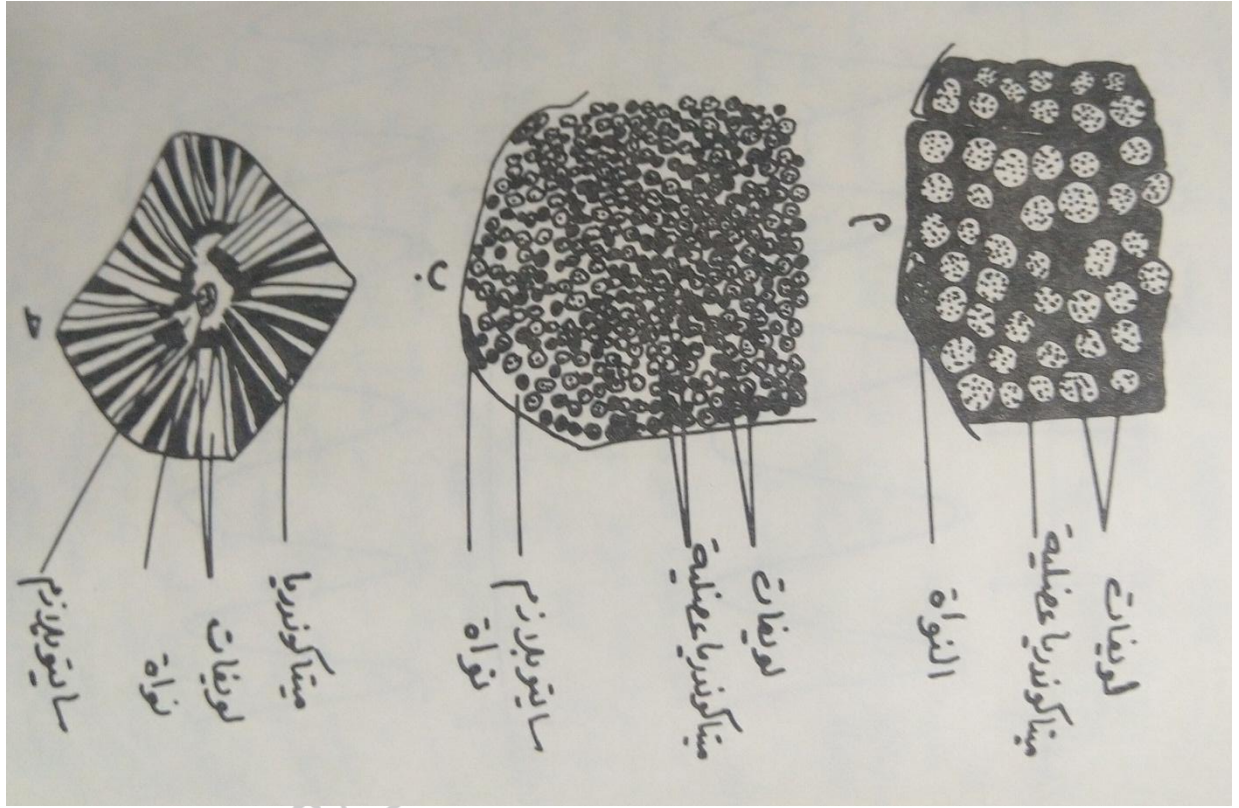 لويفات
ميتاكوندريا عضلية
النواة
أ
لويفات
ميتاكوندريا عضلية
سايتوبلازم
نواة
ب
ميتاكوندريا
لويفات
نواة
سايتوبلازم